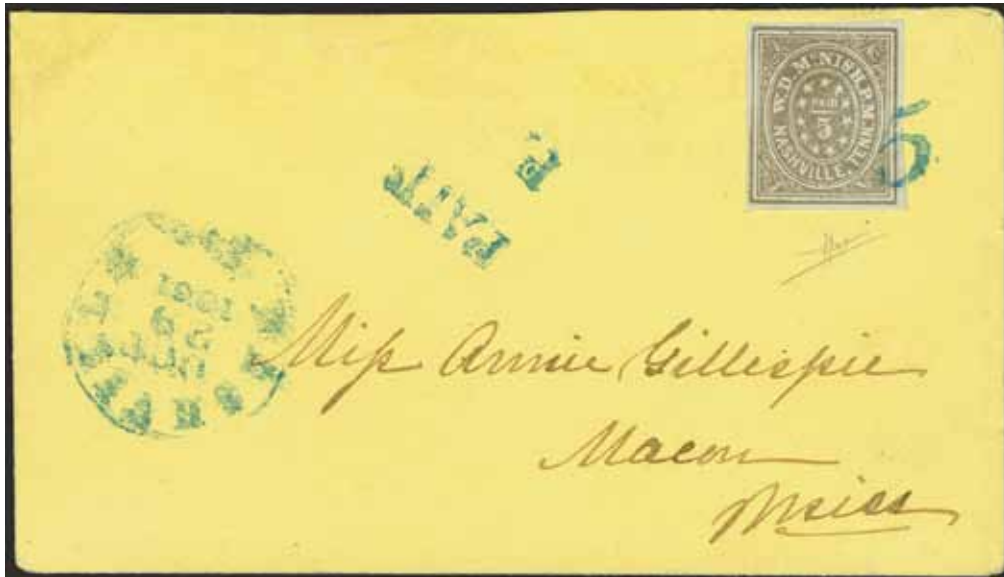 W.D. McNISH, P.M.
PAID
5
NASHVILLE, TENN.
5
PAID
NASHVILLE
1861
Miss Annie Gillespie
Macon
Miss